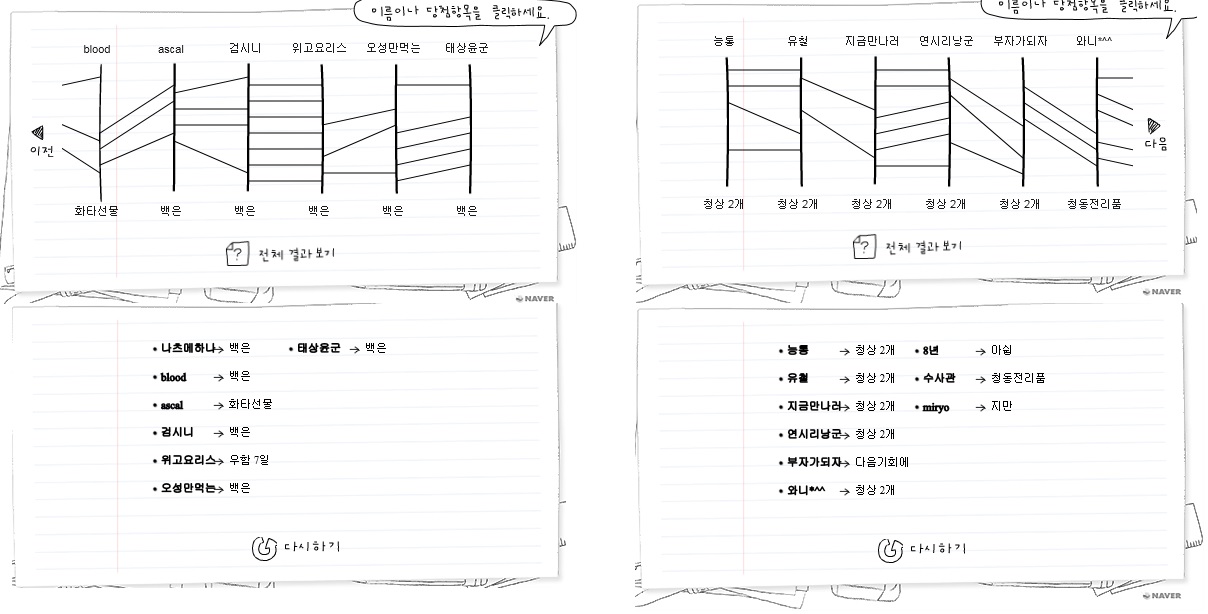 이름이나 당첨항목을 클릭하세요.
blood ascal 검시니 위고요리스 오성만먹는 태상윤군
이전
화타선물 백은 백은 백은 백은 백은
? 전체 결과 보기
NAVER
이름이나 당첨항목을 클릭하세요.
능통 유철 지금만나러 연시리낭군 부자가되자 와니*^^
다음
청상 2개 청상 2개 청상 2개 청상 2개 청상 2개 청동전리품
? 전체 결과 보기
NAVER
• 나츠메하나→ 백은 • 태상윤군 → 백은
• blood → 백은
• ascal → 화타선물
• 검시니 → 백은
• 위고요리스→ 우함 7일
• 오성만먹는→ 백은
다시하기
• 능통 → 청상 2개 • 8년 → 아쉽
• 유철 → 청상 2개 • 수사관 → 청동전리품
• 지금만나러→ 청상 2개 • miryo → 지만
• 연시리낭군→ 청상 2개
• 부자가되자→ 다음기회에
• 와니*^^ → 청상 2개
다시하기
NAVER